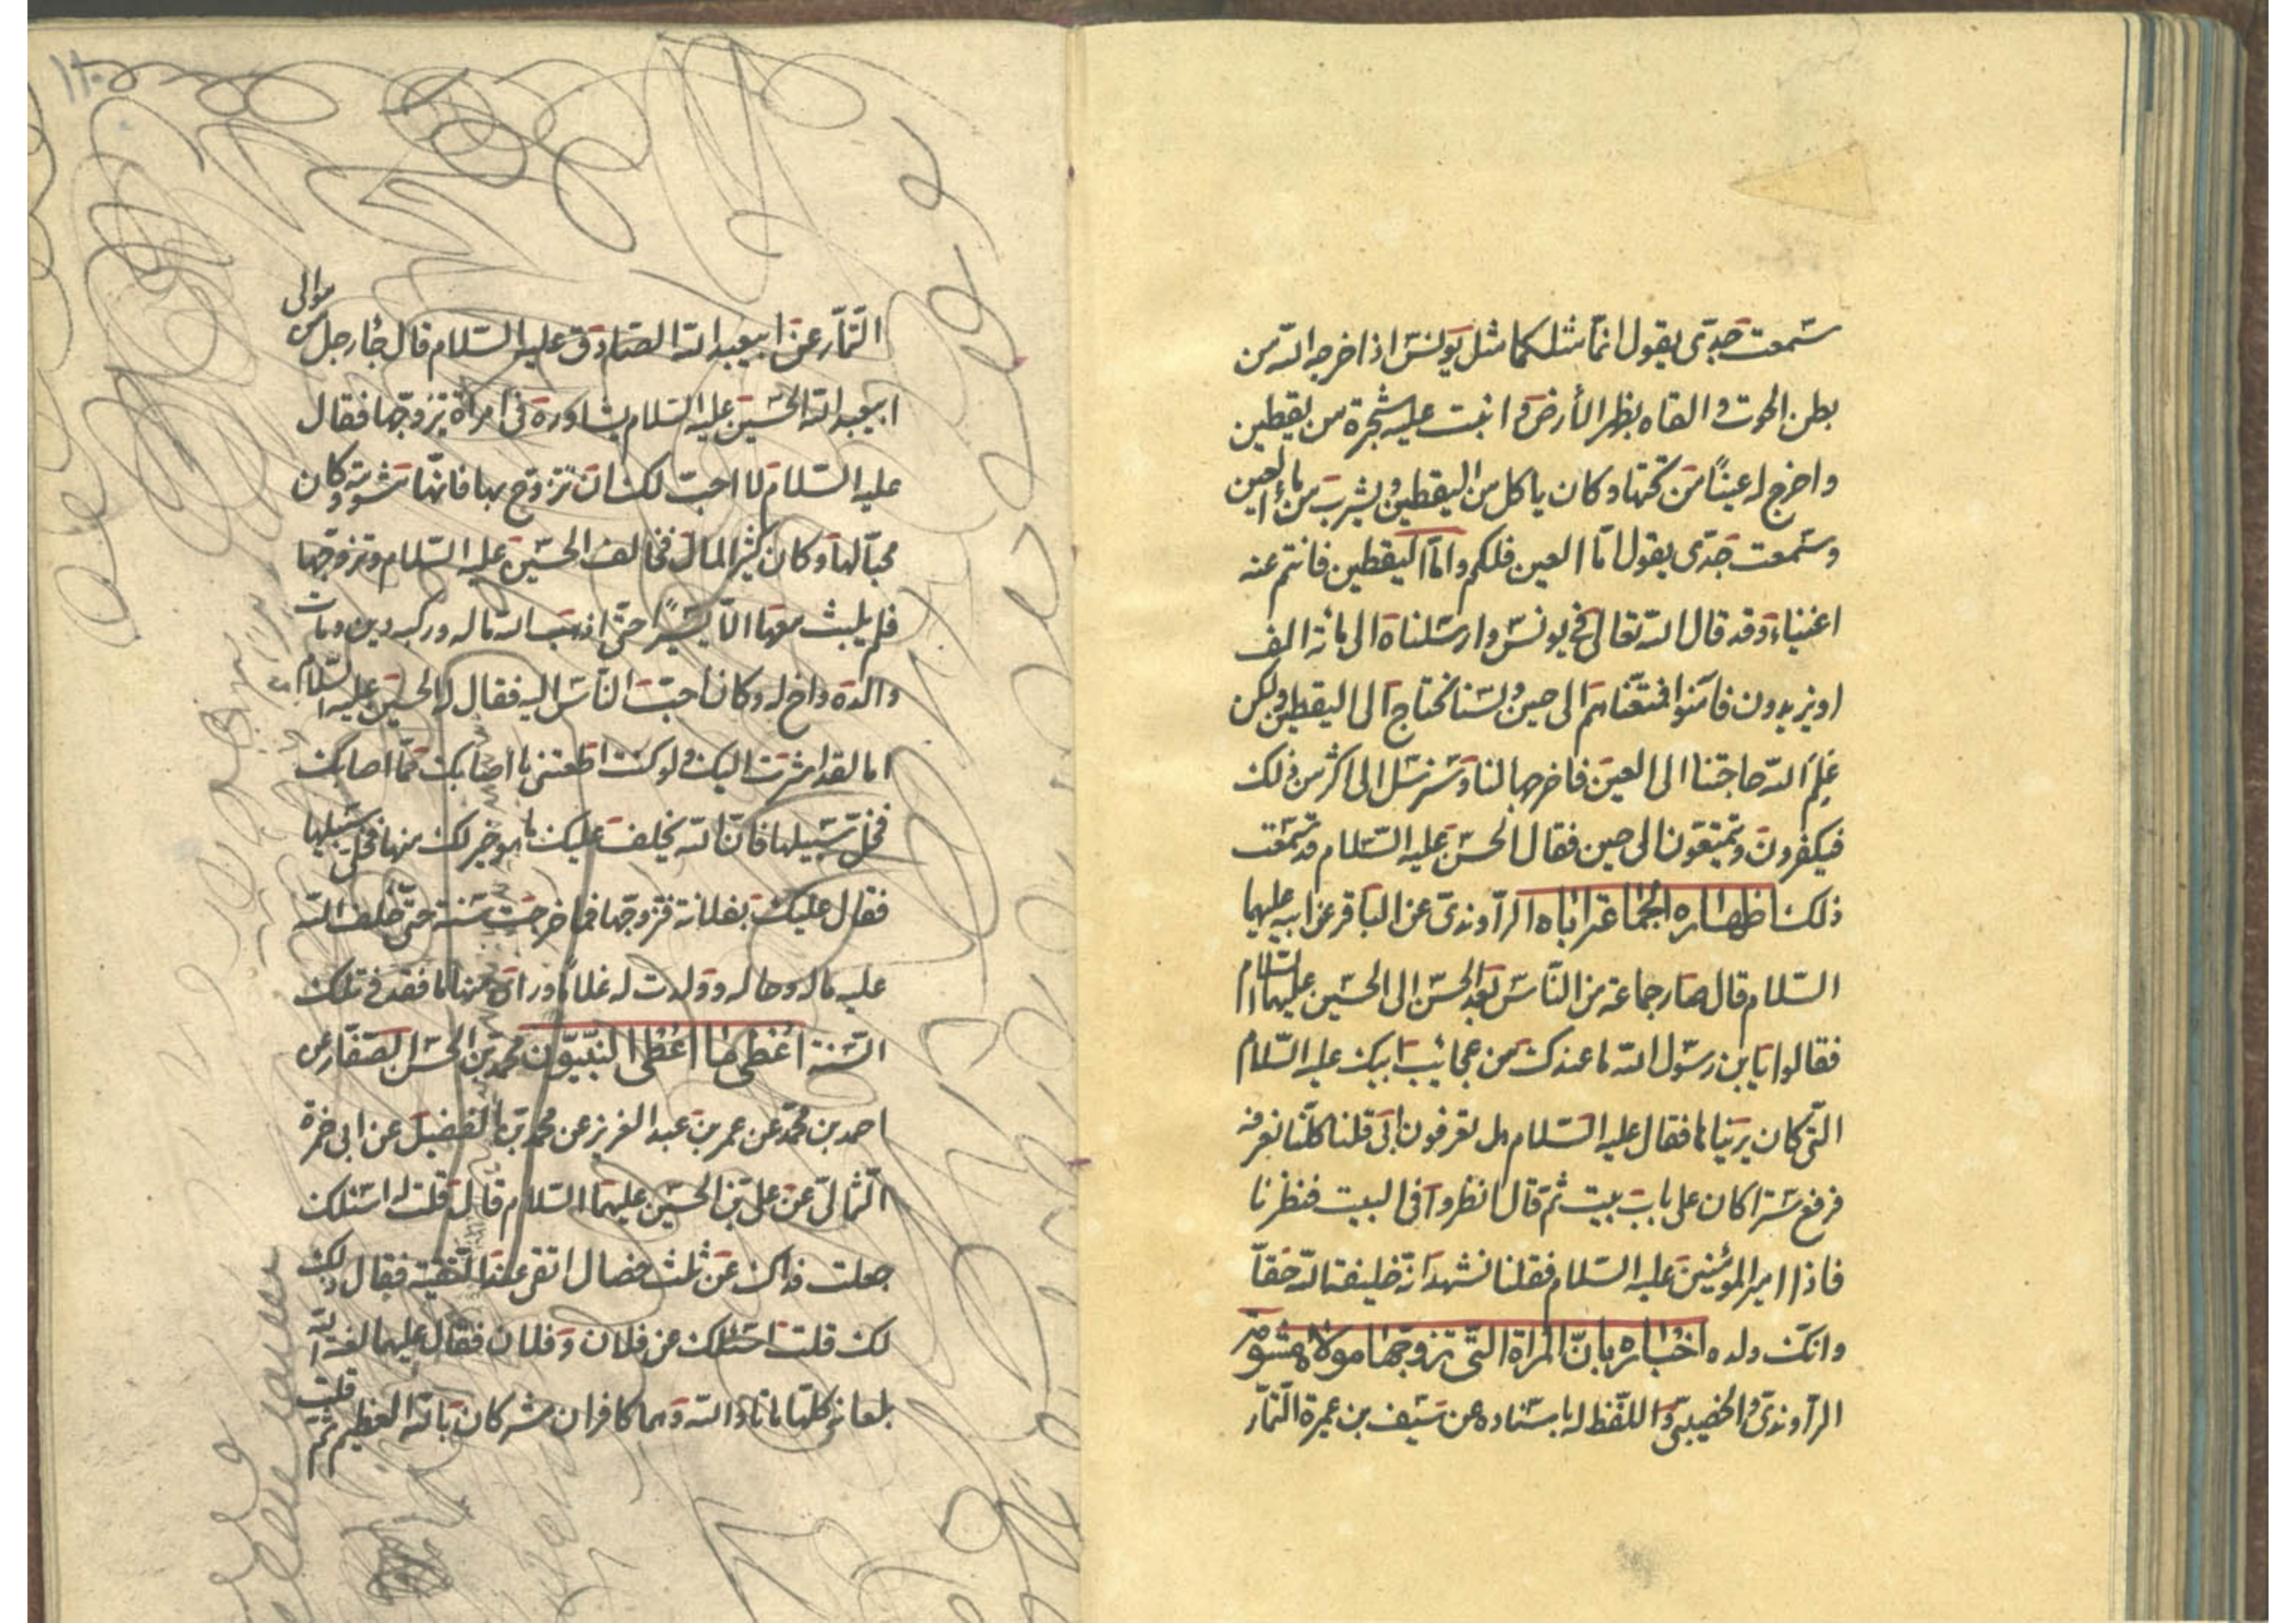 سمعت جدي يقول انما مثلكما مثل يونس اذا خرجه الله من
بطن الحوت والقاه بظهر الأرض وانبت عليه شجرة من يقطين
واخرج له عيناً من تحتها وكان ياكل من اليقطين ويشرب من ماء العين
وسمعت جدي يقول اما العين فلكم واما اليقطين فانتم عنه
اغنياء وقد قال الله تعالى في يونس وارسلناه الى مائة الف
او يزيدون فآمنوا فمتعناهم الى حين ولسنا نحتاج الى اليقطين ولكن
علم الله حاجتنا الى العين فاخرجها لنا وسنرسل الى اكثر من ذلك
فيكفرون ويمتعون الى حين فقال الحسن عليه السلام قد سمعت
ذلك اظهاره لجماعة اباه الراوندي عن الباقر عن ابيه عليهما
السلام قال صار جماعة من الناس بعد الحسن الى الحسين عليهما السلام
فقالوا يابن رسول الله ما عندك من عجائب ابيك عليه السلام
التي كان يريناها فقال عليه السلام هل تعرفون ابي قلنا كلنا نعرفه
فرفع سترا كان على باب بيت ثم قال انظروا في البيت فنظرنا
فاذا امير المؤمنين عليه السلام فقلنا نشهد انه خليفة الله حقاً
وانك ولده اخباره بان المراة التي تزوجها مولاه مشومة
الراوندي والخصيبي واللفظ له باسناده عن سيف بن عميرة التمار
التمار عن ابيعبد الله الصادق عليه السلام قال جاء رجل من موالي
ابيعبد الله الحسين عليه السلام يشاوره في امراة تزوجها فقال
عليه السلام لا احب لك ان تزوج بها فانها مشومة وكان
محبا لها وكان كثير المال فخالف الحسين عليه السلام وتزوجها
فلم يلبث معها الا يسيراً حتى اذهب الله ماله وركبه دين ومات
والده واخ له وكان احب الناس اليه فقال له الحسين عليه السلام
اما لقد اشرت اليك ولو كنت اطعتني ما اصابك مما اصابك
فخل سبيلها فان الله يخلف عليك ما هو خير لك منها فخلى سبيلها
فقال عليك بفلانة فتزوجها فما خرجت سنة حتى خلف الله
عليه ماله وحاله وولدت له غلاما وراى منها ما فقد في تلك
السنة اعطى ما اعطى النبيون محمد بن الحسن الصفار عن
احمد بن محمد عن عمر بن عبد العزيز عن محمد بن الفضيل عن ابي حمزة
الثمالي عن علي بن الحسين عليهما السلام قال قلت له اسئلك
جعلت فداك عن ثلث خصال اتقى عنذ التقية فقال ذلك
لك قلت اسئلك عن فلان وفلان فقال عليهما لعنة الله
بلعانه كلها ماتا والله وهما كافران مشركان بالله العظيم ثم قلت